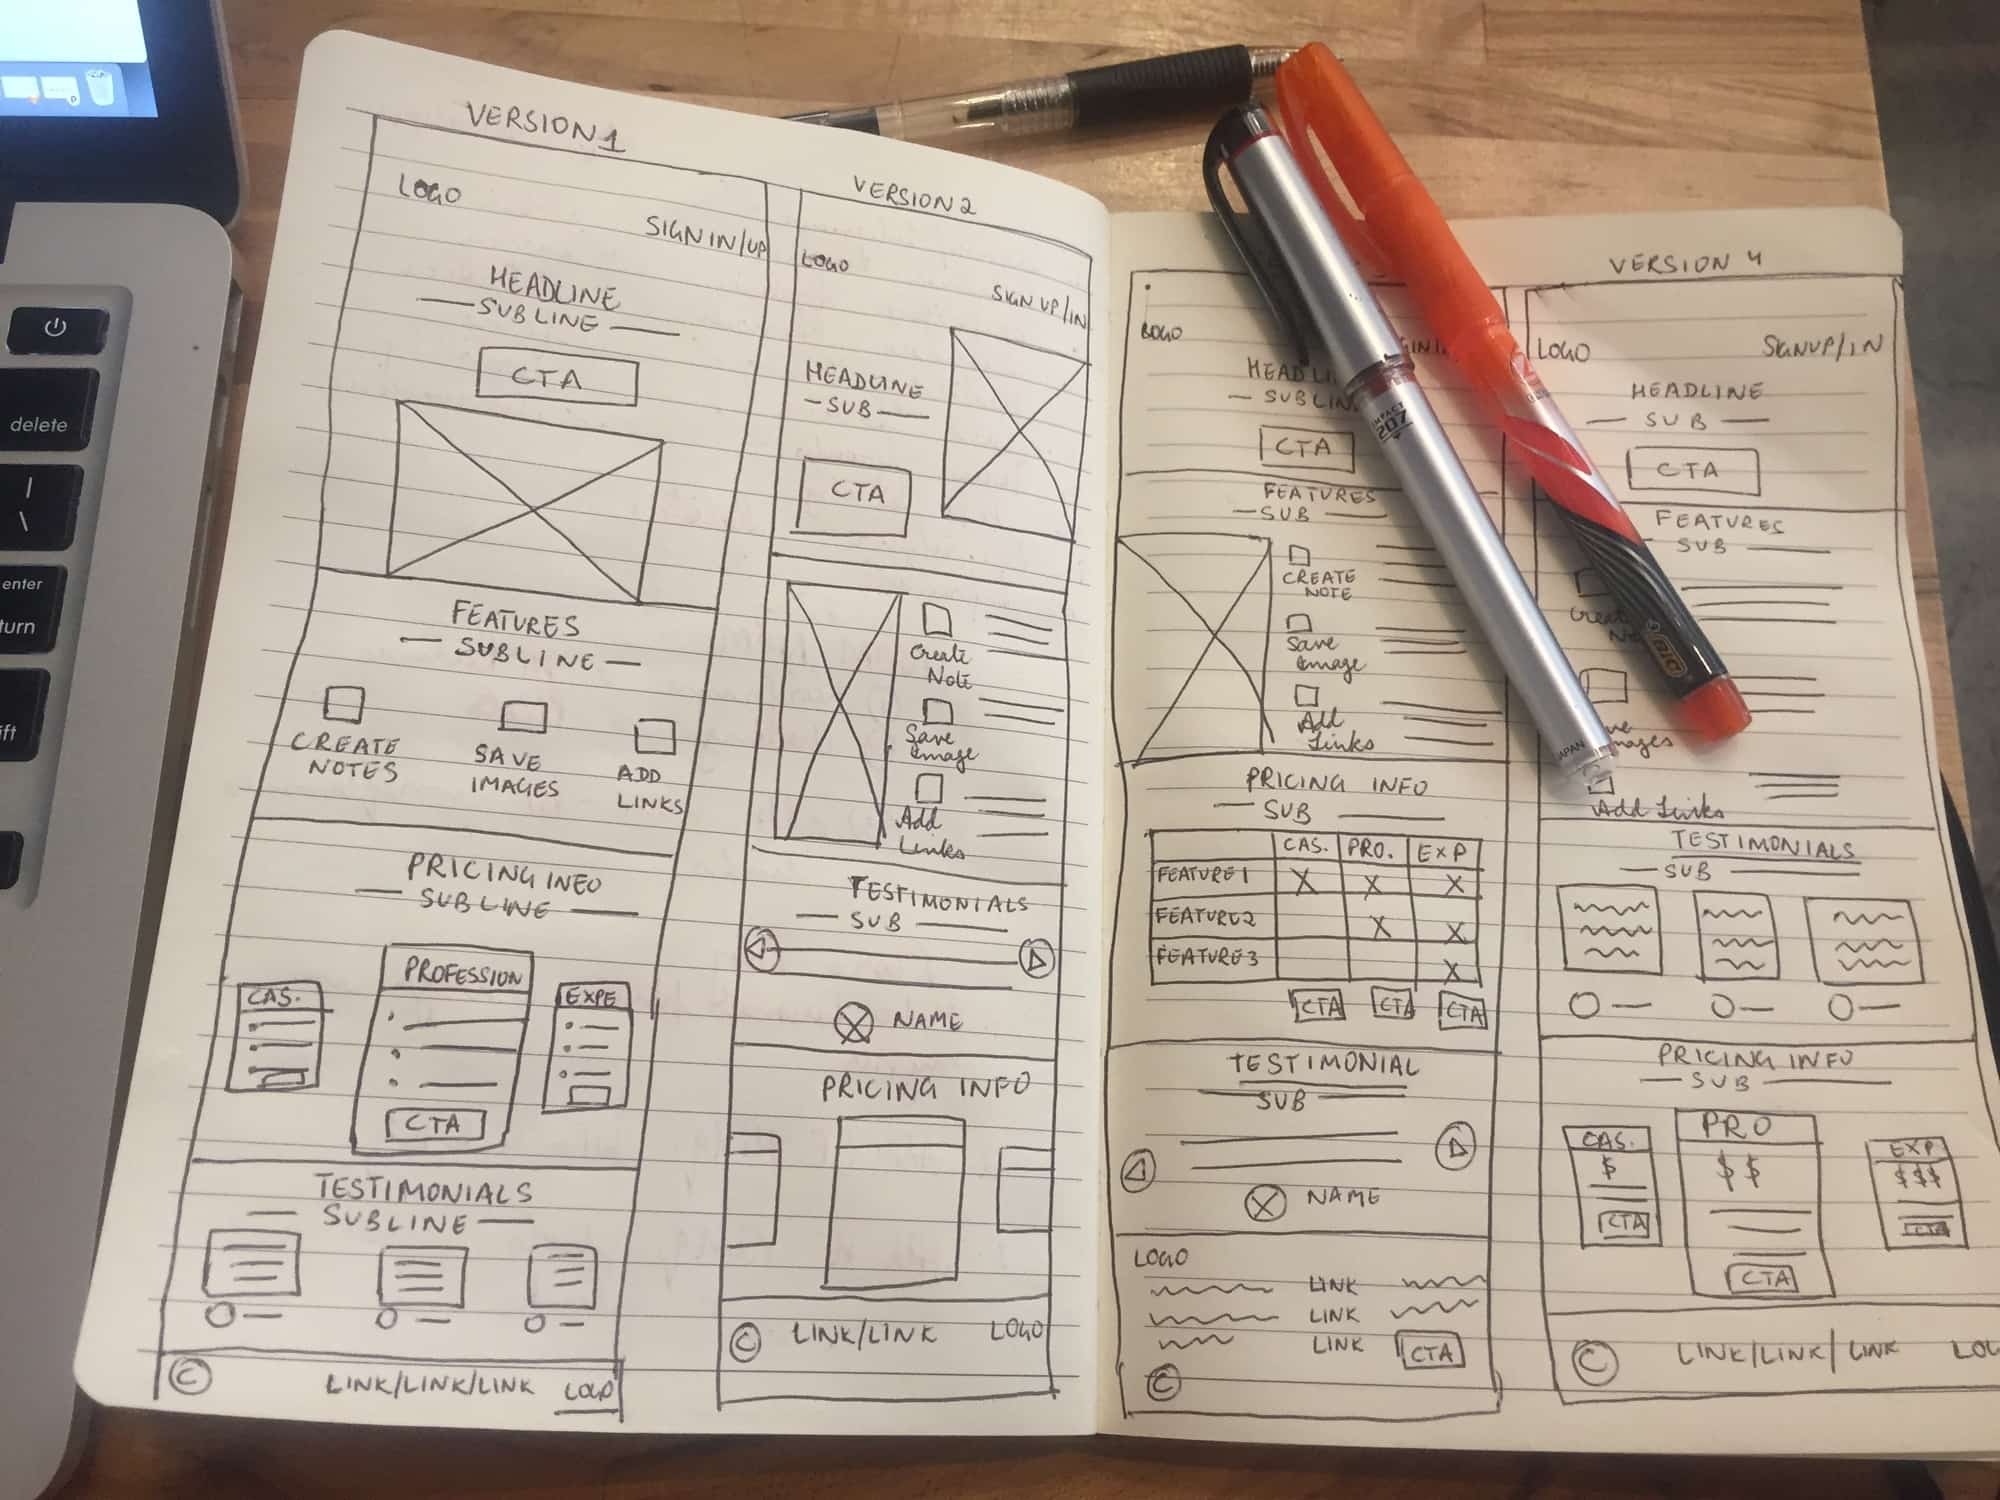 VERSION 1
LOGO
SIGN IN/UP
HEADLINE
SUBLINE
CTA
FEATURES
SUBLINE
CREATE
NOTES
SAVE
IMAGES
ADD
LINKS
PRICING INFO
SUBLINE
CAS.
PROFESSION
EXPE
CTA
TESTIMONIALS
SUBLINE
© LINK/LINK/LINK LOGO
VERSION 2
LOGO
SIGN UP/IN
HEADLINE
SUB
CTA
Create
Note
Save
Image
Add
Links
TESTIMONIALS
SUB
NAME
PRICING INFO
© LINK/LINK LOGO
LOGO
HEADLI
SUBLIN
CTA
FEATURES
SUB
CREATE
NOTE
Save
Image
Add
Links
PRICING INFO
SUB
CAS. PRO. EXP
FEATURE 1 X X X
FEATURE 2 X X
FEATURE 3 X
CTA CTA CTA
TESTIMONIAL
SUB
NAME
LOGO
LINK
LINK
LINK
CTA
©
VERSION 4
LOGO
SIGNUP/IN
HEADLINE
SUB
CTA
FEATURES
SUB
Creat
No
mages
Add Links
TESTIMONIALS
SUB
PRICING INFO
SUB
CAS.
$
CTA
PRO
$$
CTA
EXP
$$$
CTA
© LINK/LINK/LINK LOG
delete
|
\
enter
turn
ift
IMPACT
207
JAPAN